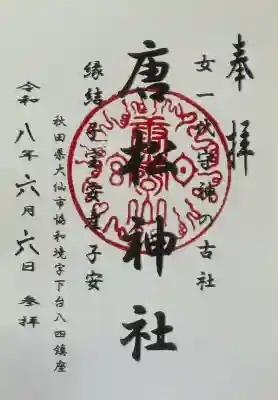 奉拝
女一代守神の古社
唐松神社
縁結 子宝 安産 子安
秋田県大仙市協和境字下台八四鎮座
令和八年六月六日 参拝